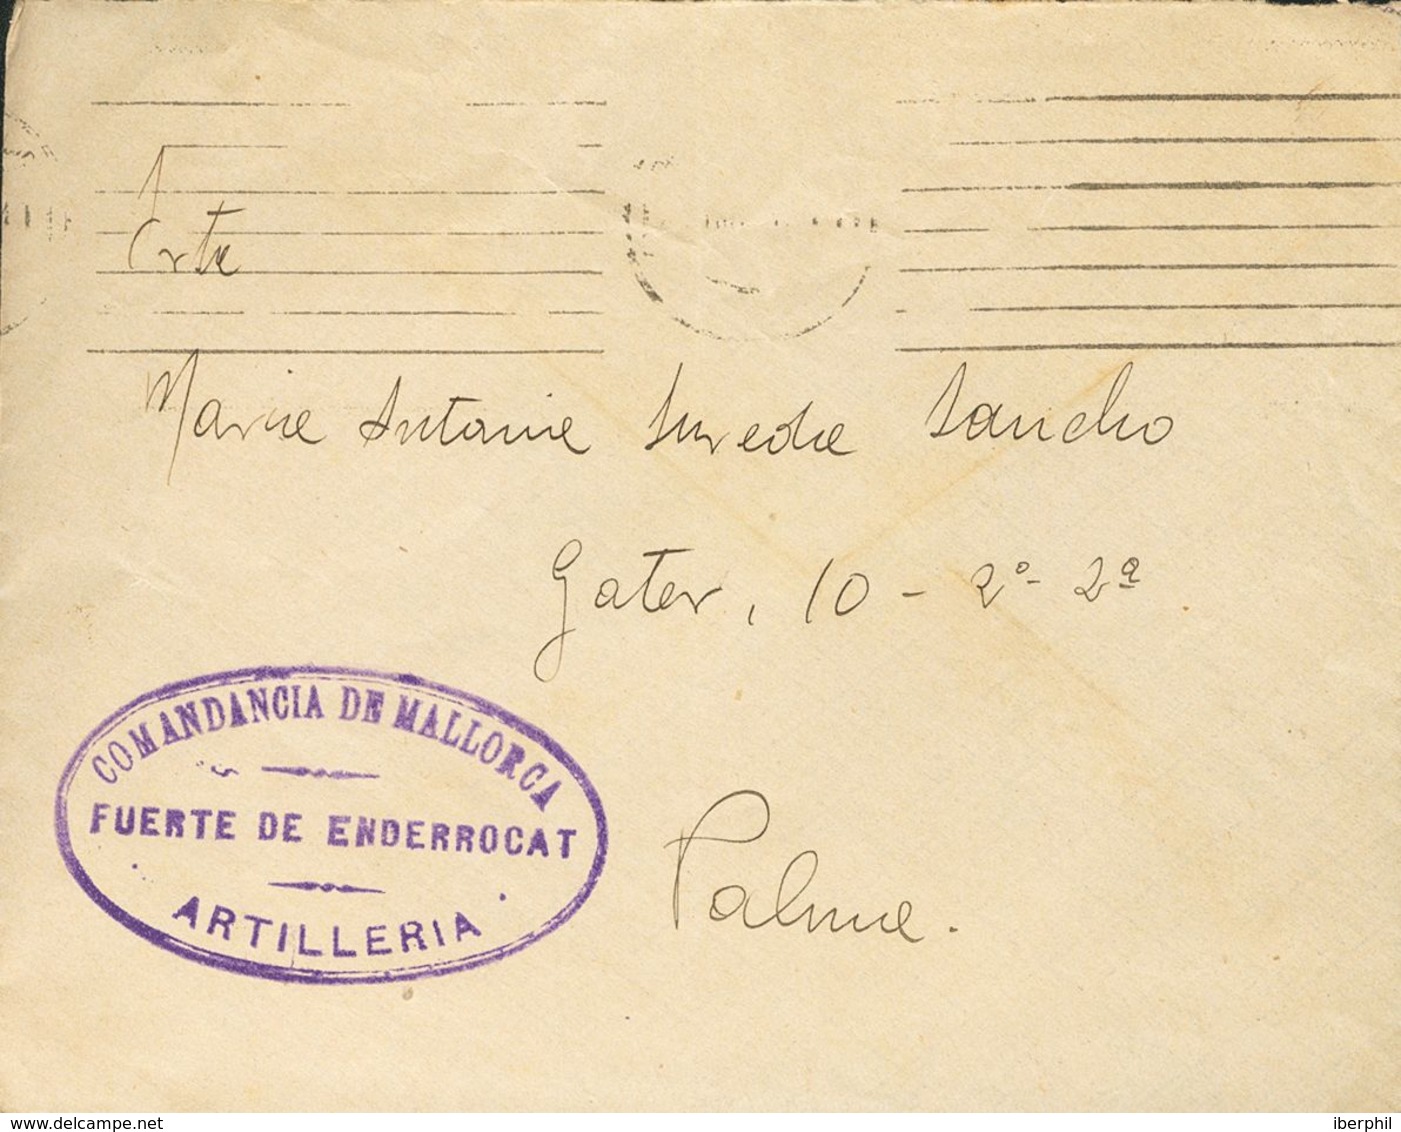 Srta
Maria Antonia Sureda Sancho
Gater, 10 - 2º- 2ª
COMANDANCIA DE MALLORCA
FUERTE DE ENDERROCAT
ARTILLERIA
Palma.
www.delcampe.net
iberphil